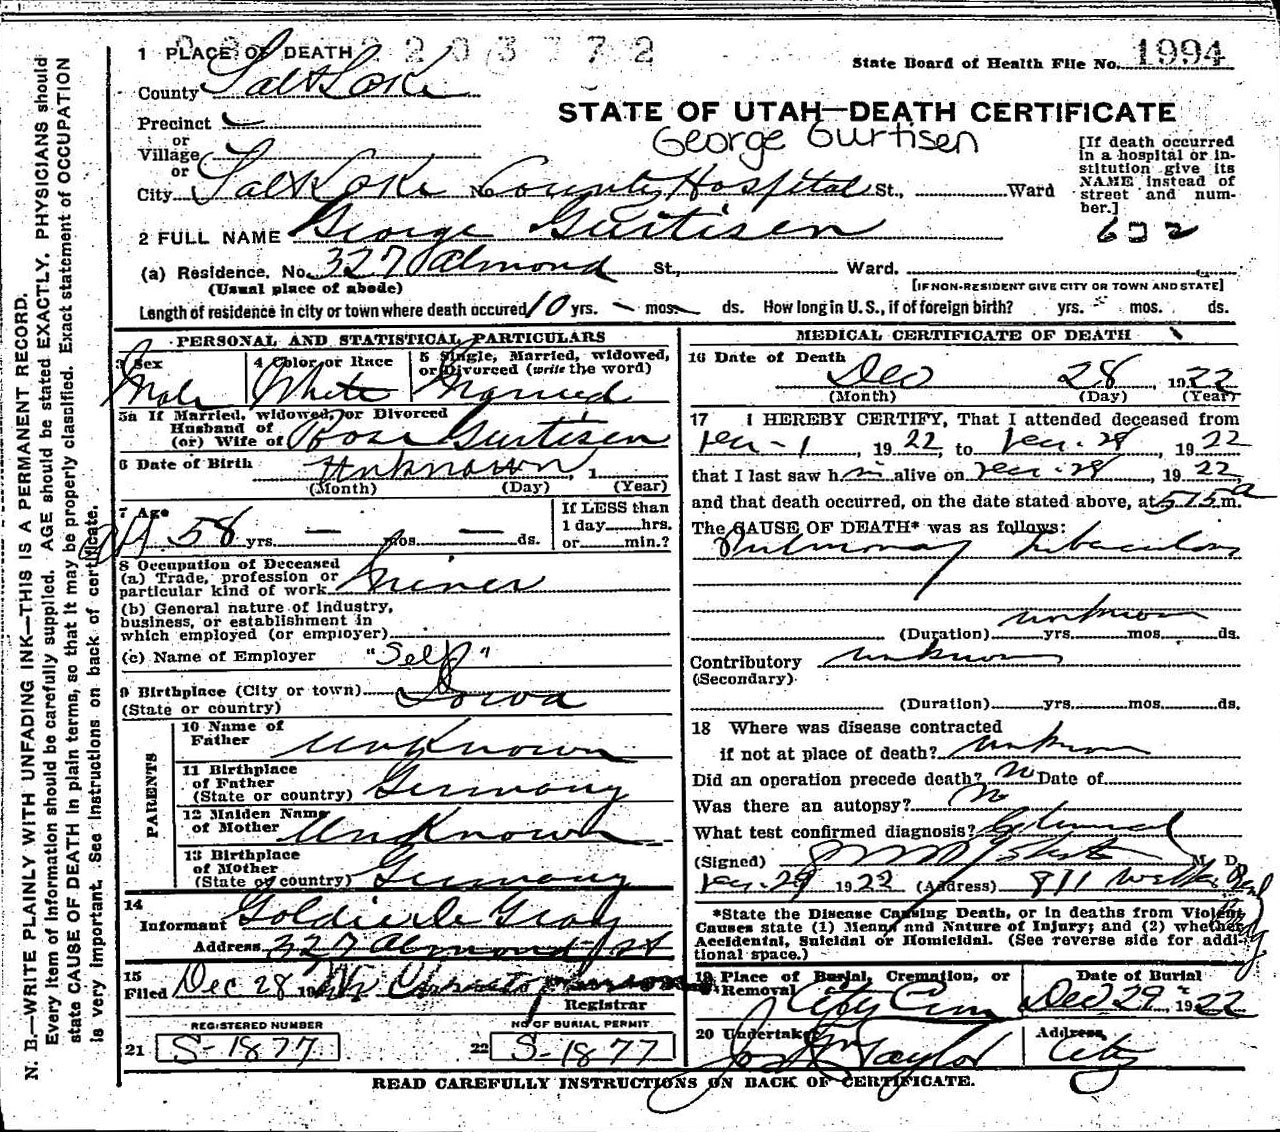 2203772
1 PLACE OF DEATH
State Board of Health File No. 1994
County Salt Lake
STATE OF UTAH—DEATH CERTIFICATE
Precinct
George Gurtisen
or
Village
or
City Salt Lake No. County Hospital St., Ward
[If death occurred
in a hospital or in-
stitution give its
NAME instead of
street and num-
ber.]
2 FULL NAME George Gurtisen
(a) Residence. No. 327 Almond St., Ward.
(Usual place of abode)
[IF NON-RESIDENT GIVE CITY OR TOWN AND STATE]
Length of residence in city or town where death occured 10 yrs. — mos. — ds. How long in U.S., if of foreign birth? yrs. mos. ds.
PERSONAL AND STATISTICAL PARTICULARS
3 Sex
Male
4 Color or Race
White
5 Single, Married, widowed,
or Divorced (write the word)
Married
5a If Married, widowed, or Divorced
Husband of
(or) Wife of Rose Gurtisen
6 Date of Birth Unknown, 1
(Month) (Day) (Year)
7 Age
58 yrs. — mos. — ds.
If LESS than
1 day hrs.
or min.?
8 Occupation of Deceased
(a) Trade, profession or
particular kind of work Miner
(b) General nature of industry,
business, or establishment in
which employed (or employer)
(c) Name of Employer "Self"
9 Birthplace (City or town)
(State or country) Iowa
PARENTS
10 Name of
Father Unknown
11 Birthplace
of Father
(State or country) Germany
12 Maiden Name
of Mother Unknown
13 Birthplace
of Mother
(State or country) Germany
14
Informant Goldie De Gray
Address 327 Almond St
15
Filed Dec 28 19
Registrar
REGISTERED NUMBER
21 S-1877
NO OF BURIAL PERMIT
22 S-1877
MEDICAL CERTIFICATE OF DEATH
16 Date of Death
Dec 28, 1922
(Month) (Day) (Year)
17 I HEREBY CERTIFY, That I attended deceased from
Dec-1, 1922, to Dec-28, 1922
that I last saw him alive on Dec-28, 1922
and that death occurred, on the date stated above, at 515 a m.
The CAUSE OF DEATH* was as follows:
Pulmonary tuberculosis
unknown
(Duration) yrs. mos. ds.
Contributory unknown
(Secondary)
(Duration) yrs. mos. ds.
18 Where was disease contracted
if not at place of death? unknown
Did an operation precede death? no Date of
Was there an autopsy? no
What test confirmed diagnosis?
(Signed) M. D.
Dec-29 1922 (Address) 811
*State the Disease Causing Death, or in deaths from Violent
Causes state (1) Means and Nature of Injury; and (2) whether
Accidental, Suicidal or Homicidal. (See reverse side for addi-
tional space.)
19 Place of Burial, Cremation, or
Removal City Cem
Date of Burial
Dec 29, 1922
20 Undertaker
Taylor
Address
City
READ CAREFULLY INSTRUCTIONS ON BACK OF CERTIFICATE.
N. B.—WRITE PLAINLY WITH UNFADING INK—THIS IS A PERMANENT RECORD.
Every item of information should be carefully supplied. AGE should be stated EXACTLY. PHYSICIANS should
state CAUSE OF DEATH in plain terms, so that it may be properly classified. Exact statement of OCCUPATION
is very important. See instructions on back of certificate.